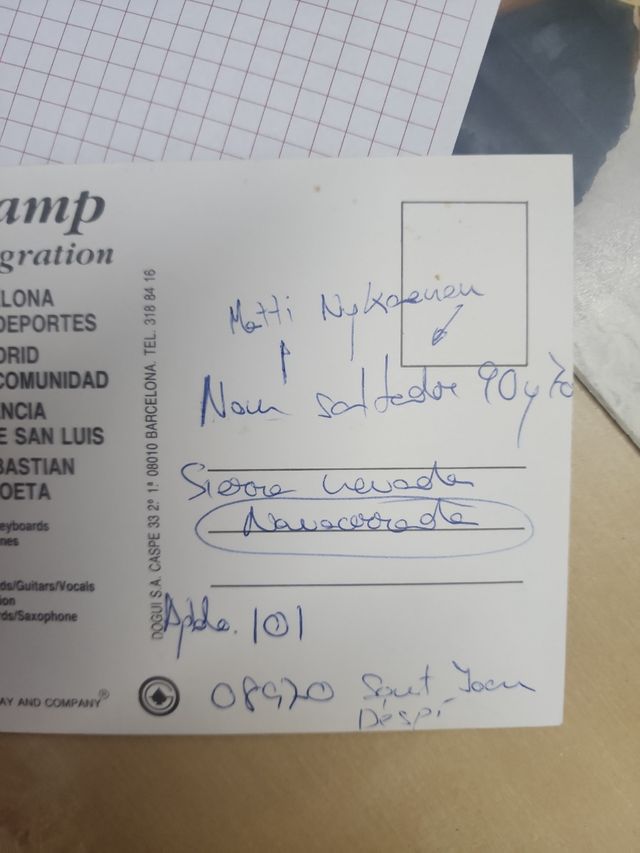 amp
gration
LONA
DEPORTES
DRID
COMUNIDAD
NCIA
E SAN LUIS
BASTIAN
OETA
eyboards
nes
ds/Guitars/Vocals
ion
rds/Saxophone
AY AND COMPANY®
DOGUI S.A. CASPE 33 2º 1ª 08010 BARCELONA. TEL. 318 84 16
Matti Nykaenen
Nom saltador 90 y 70
Sierra nevada
Navacerrada
Apdo. 101
08970 Sant Joan
Despí